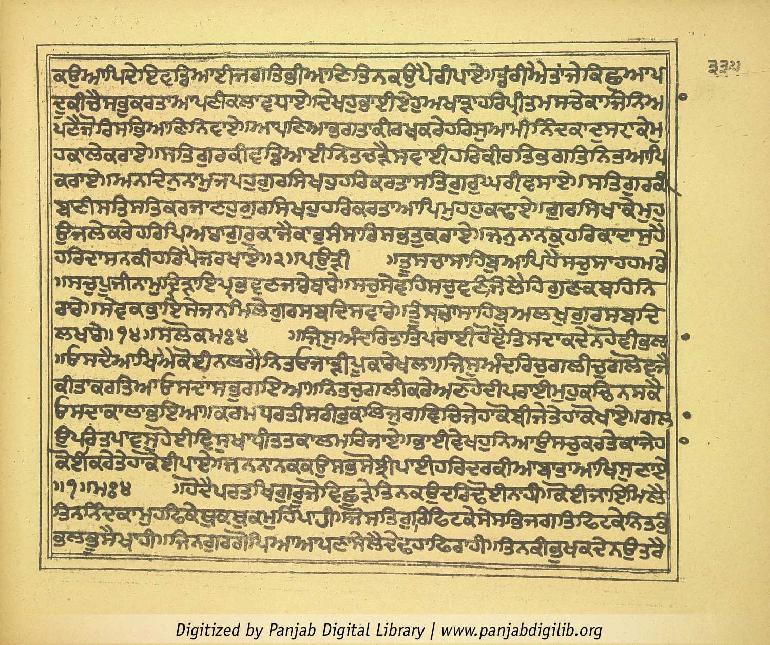 ਕਉਆਪਿਦੇਇਵਡਿਆਈਜਗਤਿਭੀਆਣਿਤਿਨਕਉਪੈਰੀਪਾਏ॥ਡਰੀਐਤਾਂਜੇਕਿਛੁਆਪ
ਦੂਕੀਚੈਸਭੁਕਰਤਾਆਪਣੀਕਲਾਵਧਾਏ॥ਦੇਖਹੁਭਾਈਏਹੁਅਖਾੜਾਹਰਿਪ੍ਰੀਤਮਸਚੇਕਾਜਿਨਿਆ
ਪਣੈਜੋਰਿਸਭਿਆਣਿਨਿਵਾਏ॥ਆਪਣਿਆਭਗਤਾਕੀਰਖਕਰੇਹਰਿਸੁਆਮੀਨਿੰਦਕਾਦੁਸਟਾਕੇਮੁ
ਹਕਾਲੇਕਰਾਏ॥ਸਤਿਗੁਰਕੀਵਡਿਆਈਨਿਤਚੜੈਸਵਾਈਹਰਿਕੀਰਤਿਭਗਤਿਨਿਤਆਪਿ
ਕਰਾਏ॥ਅਨਦਿਨੁਨਾਮੁਜਪਹੁਗੁਰਸਿਖਹੁਹਰਿਕਰਤਾਸਤਿਗੁਰੁਘਰੀਵਸਾਏ॥ਸਤਿਗੁਰਕੀ
ਬਾਣੀਸਤਿਸਤਿਕਰਜਾਣਹੁਗੁਰਸਿਖਹੁਹਰਿਕਰਤਾਆਪਿਮੁਹਹੁਕਢਾਏ॥ਗੁਰਸਿਖਾਕੇਮੁਹ
ਉਜਲੇਕਰੇਹਰਿਪਿਆਰਾਗੁਰਕਾਜੈਕਾਰੁਸੰਸਾਰਿਸਭਤੁਕਰਾਏ॥ਜਨੁਨਾਨਕੁਹਰਿਕਾਦਾਸੁਹੈ
ਹਰਿਦਾਸਨਕੀਹਰਿਪੈਜਰਖਾਏ॥੨॥ਪਉੜੀ ॥ਤੂਸਚਾਸਾਹਿਬੁਆਪਿਹੈਸਚੁਸਾਹਹਮਾਰੇ
॥ਸਚੁਪੂਜੀਨਾਮੁਦ੍ਰਿੜਾਇਪ੍ਰਭਵਣਜਾਰੇਥਾਰੇ॥ਸਚੁਸੇਵਹਿਸਚੁਵਣੰਜਿਲੈਹਿਗੁਣਕਥਹਨਿ
ਰਾਰੇ॥ਸੇਵਕਭਾਇਸੇਜਨਮਿਲੇਗੁਰਸਬਦਿਸਵਾਰੇ॥ਤੂਸਚਾਸਾਹਿਬੁਅਲਖੁਗੁਰਸਬਦਿ
ਲਖਾਰੇ॥੧੪॥ਸਲੋਕਮਃ੪ ॥ਜਿਸੁਅੰਦਰਿਤਾਤਿਪਰਾਈਹੋਵੈਤਿਸਦਾਕਦੇਨਹੋਵੀਭਲਾ
॥ਓਸਦੈਆਖਿਐਕੋਈਨਲਗੈਨਿਤਓਜਾੜੀਪੂਕਾਰੇਖਲਾ॥ਜਿਸੁਅੰਦਰਿਚੁਗਲੀਚੁਗਲੋਵਜੈ
ਕੀਤਾਕਰਤਿਆਓਸਦਾਸਭੁਗਇਆ॥ਨਿਤਚੁਗਲੀਕਰੇਅਣਹੋਦੀਪਰਾਈਮੁਹੁਕਢਿਨਸਕੈ
ਓਸਦਾਕਾਲਾਭਇਆ॥ਕਰਮਧਰਤੀਸਰੀਰੁਕਲਿਜੁਗਵਿਚਿਜੇਹਾਕੋਬੀਜੇਤੇਹਾਕੋਖਾਏ॥ਗਲਾ
ਉਪਰਿਤਪਾਵਸੁਹੋਈਵਿਸੁਖਾਧੀਤਤਕਾਲਮਰਿਜਾਏ॥ਭਾਈਵੇਖਹੁਨਿਆਉਸਚੁਕਰਤੇਕਾਜੇਹਾ
ਕੋਈਕਰੇਤੇਹਾਕੋਈਪਾਏ॥ਜਨਨਾਨਕਕਉਸਭਸੋਝੀਪਾਈਹਰਿਦਰਕੀਆਬਾਤਾਆਖਿਸੁਣਾਏ
॥੧॥ਮਃ੪ ॥ਹੋਦੈਪਰਤਖਿਗੁਰੂਜੋਵਿਛੁੜੇਤਿਨਕਉਦਰਿਢੋਈਨਾਹੀ॥ਕੋਈਜਾਇਮਿਲੈ
ਤਿਨਨਿੰਦਕਾਮੁਹਫਿਕੇਥੁਕਥੁਕਮੁਹਿਪਾਹੀ॥ਜੋਸਤਿਗੁਰਿਫਿਟਕੇਸੇਸਭਿਜਗਤਿਫਿਟਕੇਨਿਤਭੰ
ਭਲਭੂਸੇਖਾਹੀ॥ਜਿਨਗੁਰੁਗੋਪਿਆਆਪਣਾਸੇਲੈਦੇਢਹਾਫਿਰਾਹੀ॥ਤਿਨਕੀਭੁਖਕਦੇਨਉਤਰੈ
੩੩੫
Digitized by Panjab Digital Library | www.panjabdigilib.org